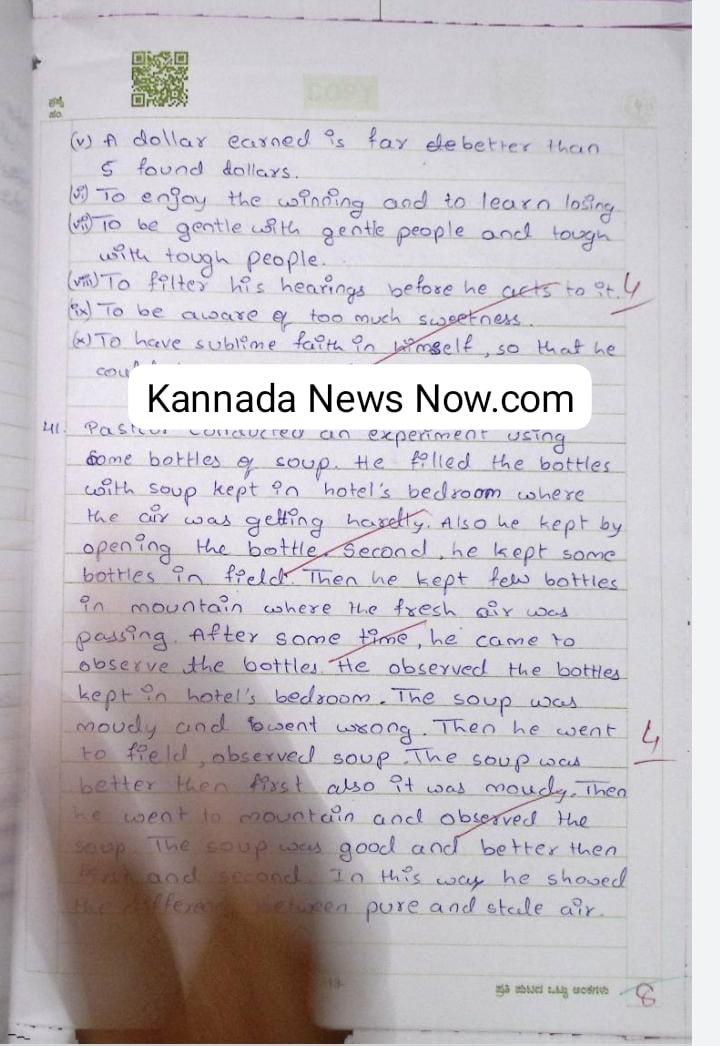 ಪ್ರಶ್ನೆ
ಸಂ.
COPY
(v) A dollar earned is far debetter than
5 found dollars.
(vi) To enjoy the winning and to learn losing
(vii) To be gentle with gentle people and tough
with tough people.
(viii) To filter his hearings before he acts to it. 4
(ix) To be aware of too much sweetness.
(x) To have sublime faith in himself, so that he
Kannada News Now.com
41. conducted an experiment using
some bottles of soup. He filled the bottles
with soup kept in hotel's bedroom where
the air was getting hardly. Also he kept by
opening the bottle. Second, he kept some
bottles in field. Then he kept few bottles
in mountain where the fresh air was
passing. After some time, he came to
observe the bottles. He observed the bottles
kept in hotel's bedroom. The soup was
moudy and went wrong. Then he went 4
to field, observed soup. The soup was
better then first also it was moudy. Then
he went to mountain and observed the
soup. The soup was good and better then
first and second. In this way he showed
the difference between pure and stale air.
ಪ್ರತಿ ಪುಟದ ಒಟ್ಟು ಅಂಕಗಳು 8